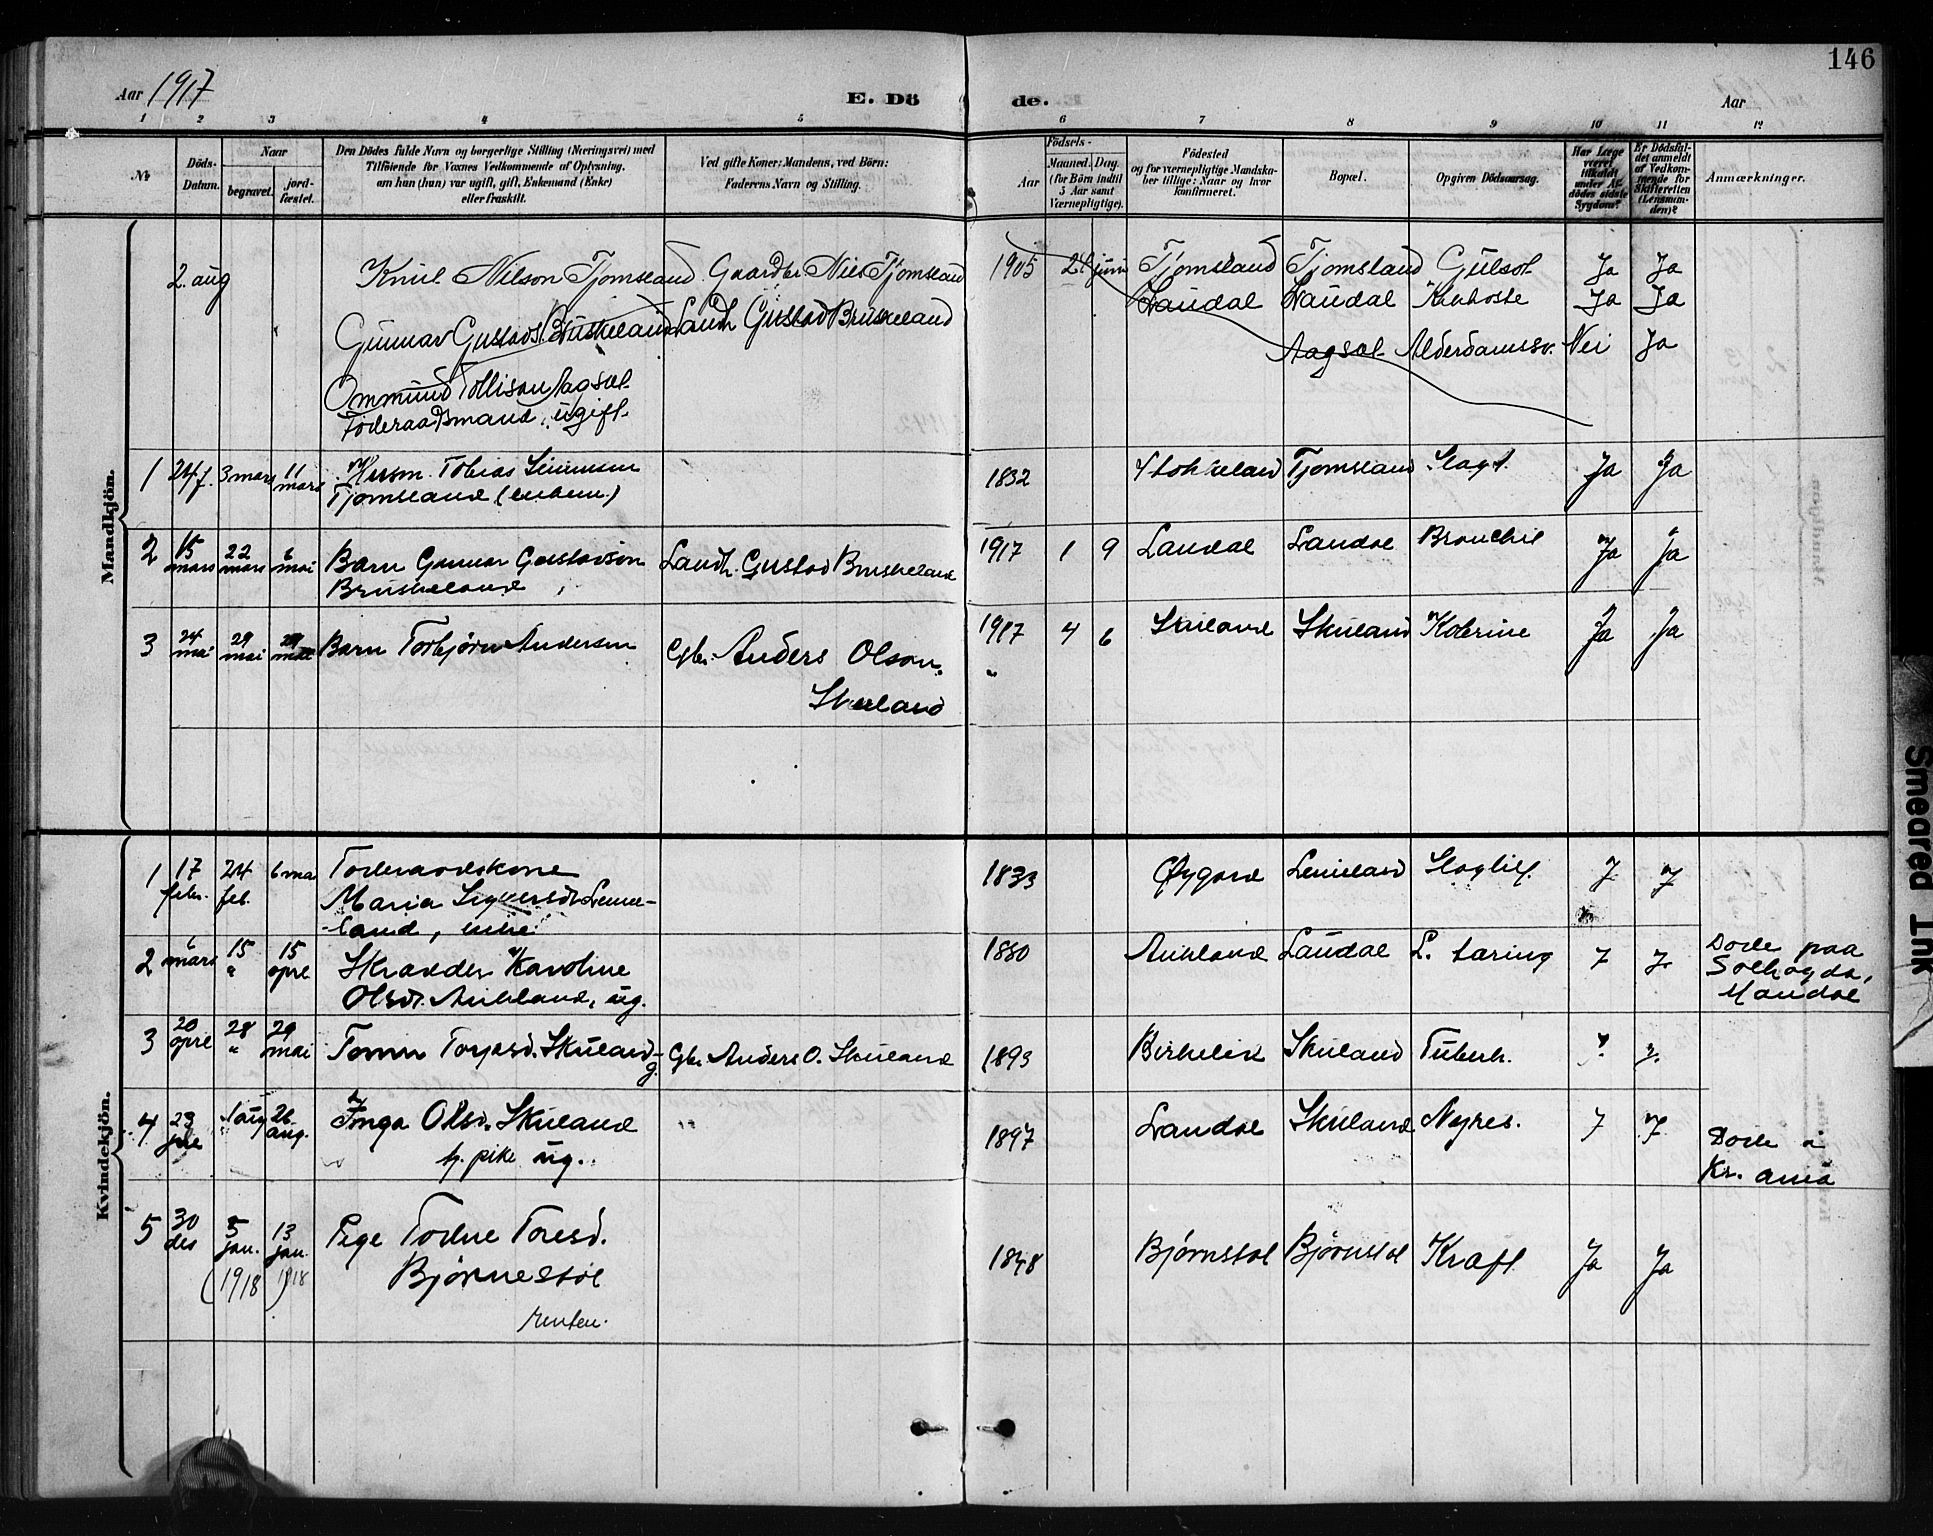 146
Aar 1917
E. Dö
de.
Aar
1 2 3 4 5 6 7 8 9 10 11 12
No
Döds-
Datum.
Naar
begravet.
jord-
fæstet.
Den Dödes fulde Navn og borgerlige Stilling (Næringsvei) med
Tilföiende for Voxnes Vedkommende af Oplysning,
om han (hun) var ugift, gift, Enkemand (Enke)
eller fraskilt.
Ved gifte Koner: Mandens, ved Börn:
Faderens Navn og Stilling.
Födsels-
Aar
Maaned. Dag.
(for Börn indtil
5 Aar samt
Værnepligtige).
Födested
og for værnepligtige Mandska-
ber tillige: Naar og hvor
konfirmeret.
Bopæl.
Opgiven Dödsaarsag.
Har Læge
været
tilkaldt
under Af-
dödes sidste
Sygdom?
Er Dödsfal-
det anmeldt
af Vedkom-
mende for
Skifteretten
(Lensman-
den)?
Anmærkninger.
Mandkjön.
2. aug Knut Nilson Tjomsland Gaardbr Niels Tjomsland 1905 24 juni Tjomsland Tjomsland Gulsot Ja Ja
Gunnar Gustavs. Bruskeland Landh Gustav Bruskeland Laudal Laudal Kikhoste Ja Ja
Ommund Tollison Aagsæl Aagsæl Alderdomssv. Nei Ja
Føderaadsmand, ugift
1 24 f. 3 mars 11 mars Husm. Tobias
Tjomsland (enkem.) 1832 Stokkeland Tjomsland Slagt. Ja Ja
2 15 mars 22 mars 6 mai Barn Gunnar Gustavson
Bruskeland Landh. Gustav Bruskeland 1917 1 9 Laudal Laudal Bronchit Ja Ja
3 24 mai 29 mai 29 mai Barn Torbjørn Anderson Gbr. Anders Olson
Skuland 1917 4 6 Skuland Skuland Kolerine Ja Ja
Kvindekjön.
1 17 febr. 24 feb. 6 ma Føderaadskone
Maria
land, enke 1833 Øygard Slagtilf. J. J
2 6 mars 15 " 15 apre Skrædder Karoline
Olsd. Aukland, ug. 1850 Aukland Laudal L. tæring J J. Døde paa
Solhøgda,
Mandal
3 20 apre 28 " 29 mai Tomine Torjusd. Skuland
g. Gbr. Anders O. Skuland 1893 Birkelid Skuland Tuberk. J. J.
4 23 1 aug 26 aug. Inga Olsd. Skuland
tj. pike ug. 1897 Laudal Skuland Nyres. J J. Døde i
Kr. ania
5 30 des 5 jan. 13 jan. Pige Torine Toresd.
(1918) 1918 Bjørnestøl
renten. 1848 Bjørnstøl Bjørnstøl Kræft Ja Ja
Smeared Ink